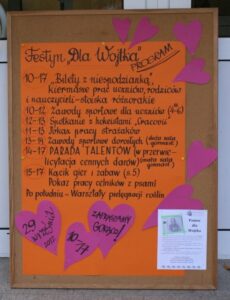 Festyn „Dla Wojtka"
PROGRAM
10-17 „Bilety z niespodzianką",
kiermasze prac uczniów, rodziców
i nauczycieli - stoiska różnorakie
10-12 Zawody sportowe dla uczniów
12-13 Spotkanie z hokeistami „Cracovii"
11-13 Pokaz pracy strażaków
13-15 Zawody sportowe dorosłych (duża sala gimnast.)
14-17 PARADA TALENTÓW (w przerwie-
licytacja cennych darów) (mała sala gimnast.)
15-17 Kącik gier i zabaw (s.5)
Pokaz pracy celników z psami
Po południu - Warsztaty pielęgnacji roślin
29
września
10-17
ZAPRASZAMY
GORĄCO!
Pomoc
dla
Wojtka